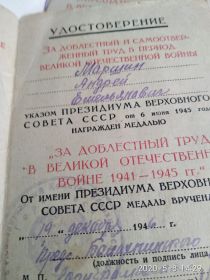 УДОСТОВЕРЕНИЕ
ЗА ДОБЛЕСТНЫЙ И САМООТВЕР-
ЖЕННЫЙ ТРУД В ПЕРИОД
ВЕЛИКОЙ ОТЕЧЕСТВЕННОЙ ВОЙНЫ
Андрей
УКАЗОМ ПРЕЗИДИУМА ВЕРХОВНОГО
СОВЕТА СССР от 6 июня 1945 года
НАГРАЖДЕН МЕДАЛЬЮ
„ЗА ДОБЛЕСТНЫЙ ТРУД
В ВЕЛИКОЙ ОТЕЧЕСТВЕННОЙ
ВОЙНЕ 1941—1945 гг."
От имени ПРЕЗИДИУМА ВЕРХОВНОГО
СОВЕТА СССР МЕДАЛЬ ВРУЧЕНА
19 декабря 194
(должность и подпись лица,
М. П.
2020-5-8 14:29